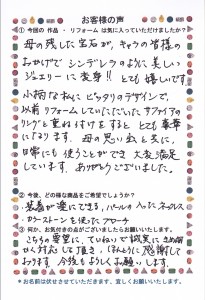 お客様の声
①今回の 作品 ・ リフォーム は気に入っていただけましたか?
母の残した宝石が、キャラの皆様の
おかげで シンデレラのように美しい
ジュエリーに変身!! とても嬉しいです
小柄な私に ピッタリのデザインで、
以前リフォームしていただいた サファイアの
リングと重ね付けすると とても豪華
になります。 母の思い出と共に、
日常にも使うことができ 大変満足
しています。ありがとうございました。
②今後、どの様な商品をご希望でしょうか?
・装着が楽にできる、パールの入ったネックレス
・カラーストーンを使った ブローチ
③何か、お気付きの点がございましたらお願いいたします。
こちらの要望に、ていねいで誠実に
対応して頂き、ほんとうに感謝して
おります。今後もよろしくお願いします。
*お名前は伏せさせていただきます、宜しくお願いいたします。